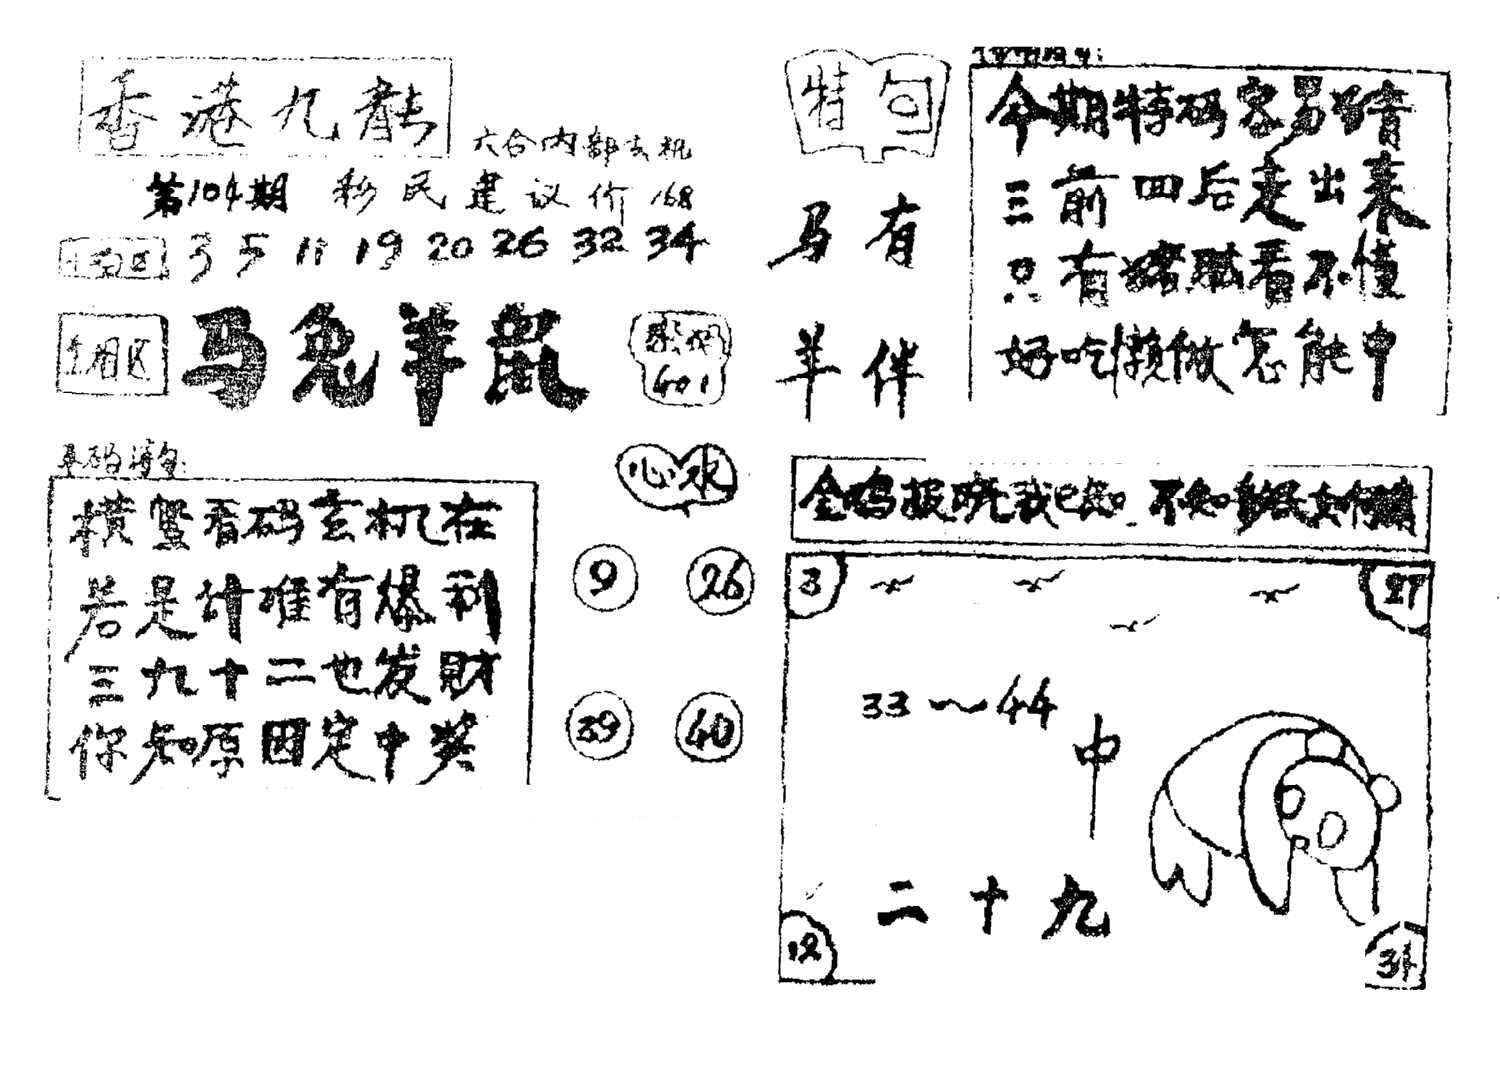 香港九龍
六合内部玄机
第104期 移民建议价168
3 5 11 19 20 26 32 34
马兔羊鼠
601
横鸳看码玄机在
若是计准有爆利
三九十二也发财
你知原因定中奖
心水
9 26
39 40
特句
马有
羊伴
今期特码容易猜
三前四后走出来
只有猪 看不懂
好吃懒做怎能中
金鸡报晓我已知 不知
3 27
33~44
中
二十九
12 31